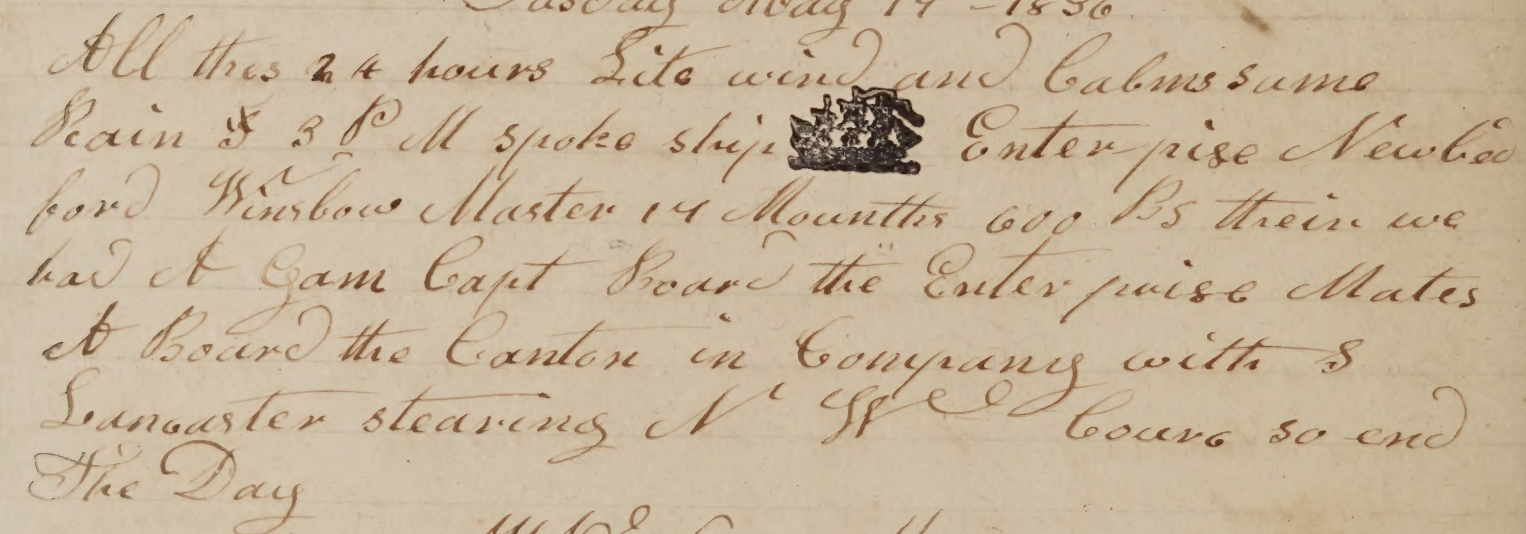 Tusday May 17 - 1836
All this 24 hours Lite wind and Calms sume
Rain 3 P M spoke ship Enterprise Newbed
ford Winslow Master 17 Mounths 600 Bs thein we
had A Gam Capt Board the Enterprise Mates
A Board the Canton in Company with S
Lancaster stearing N W Cours so end
The Day